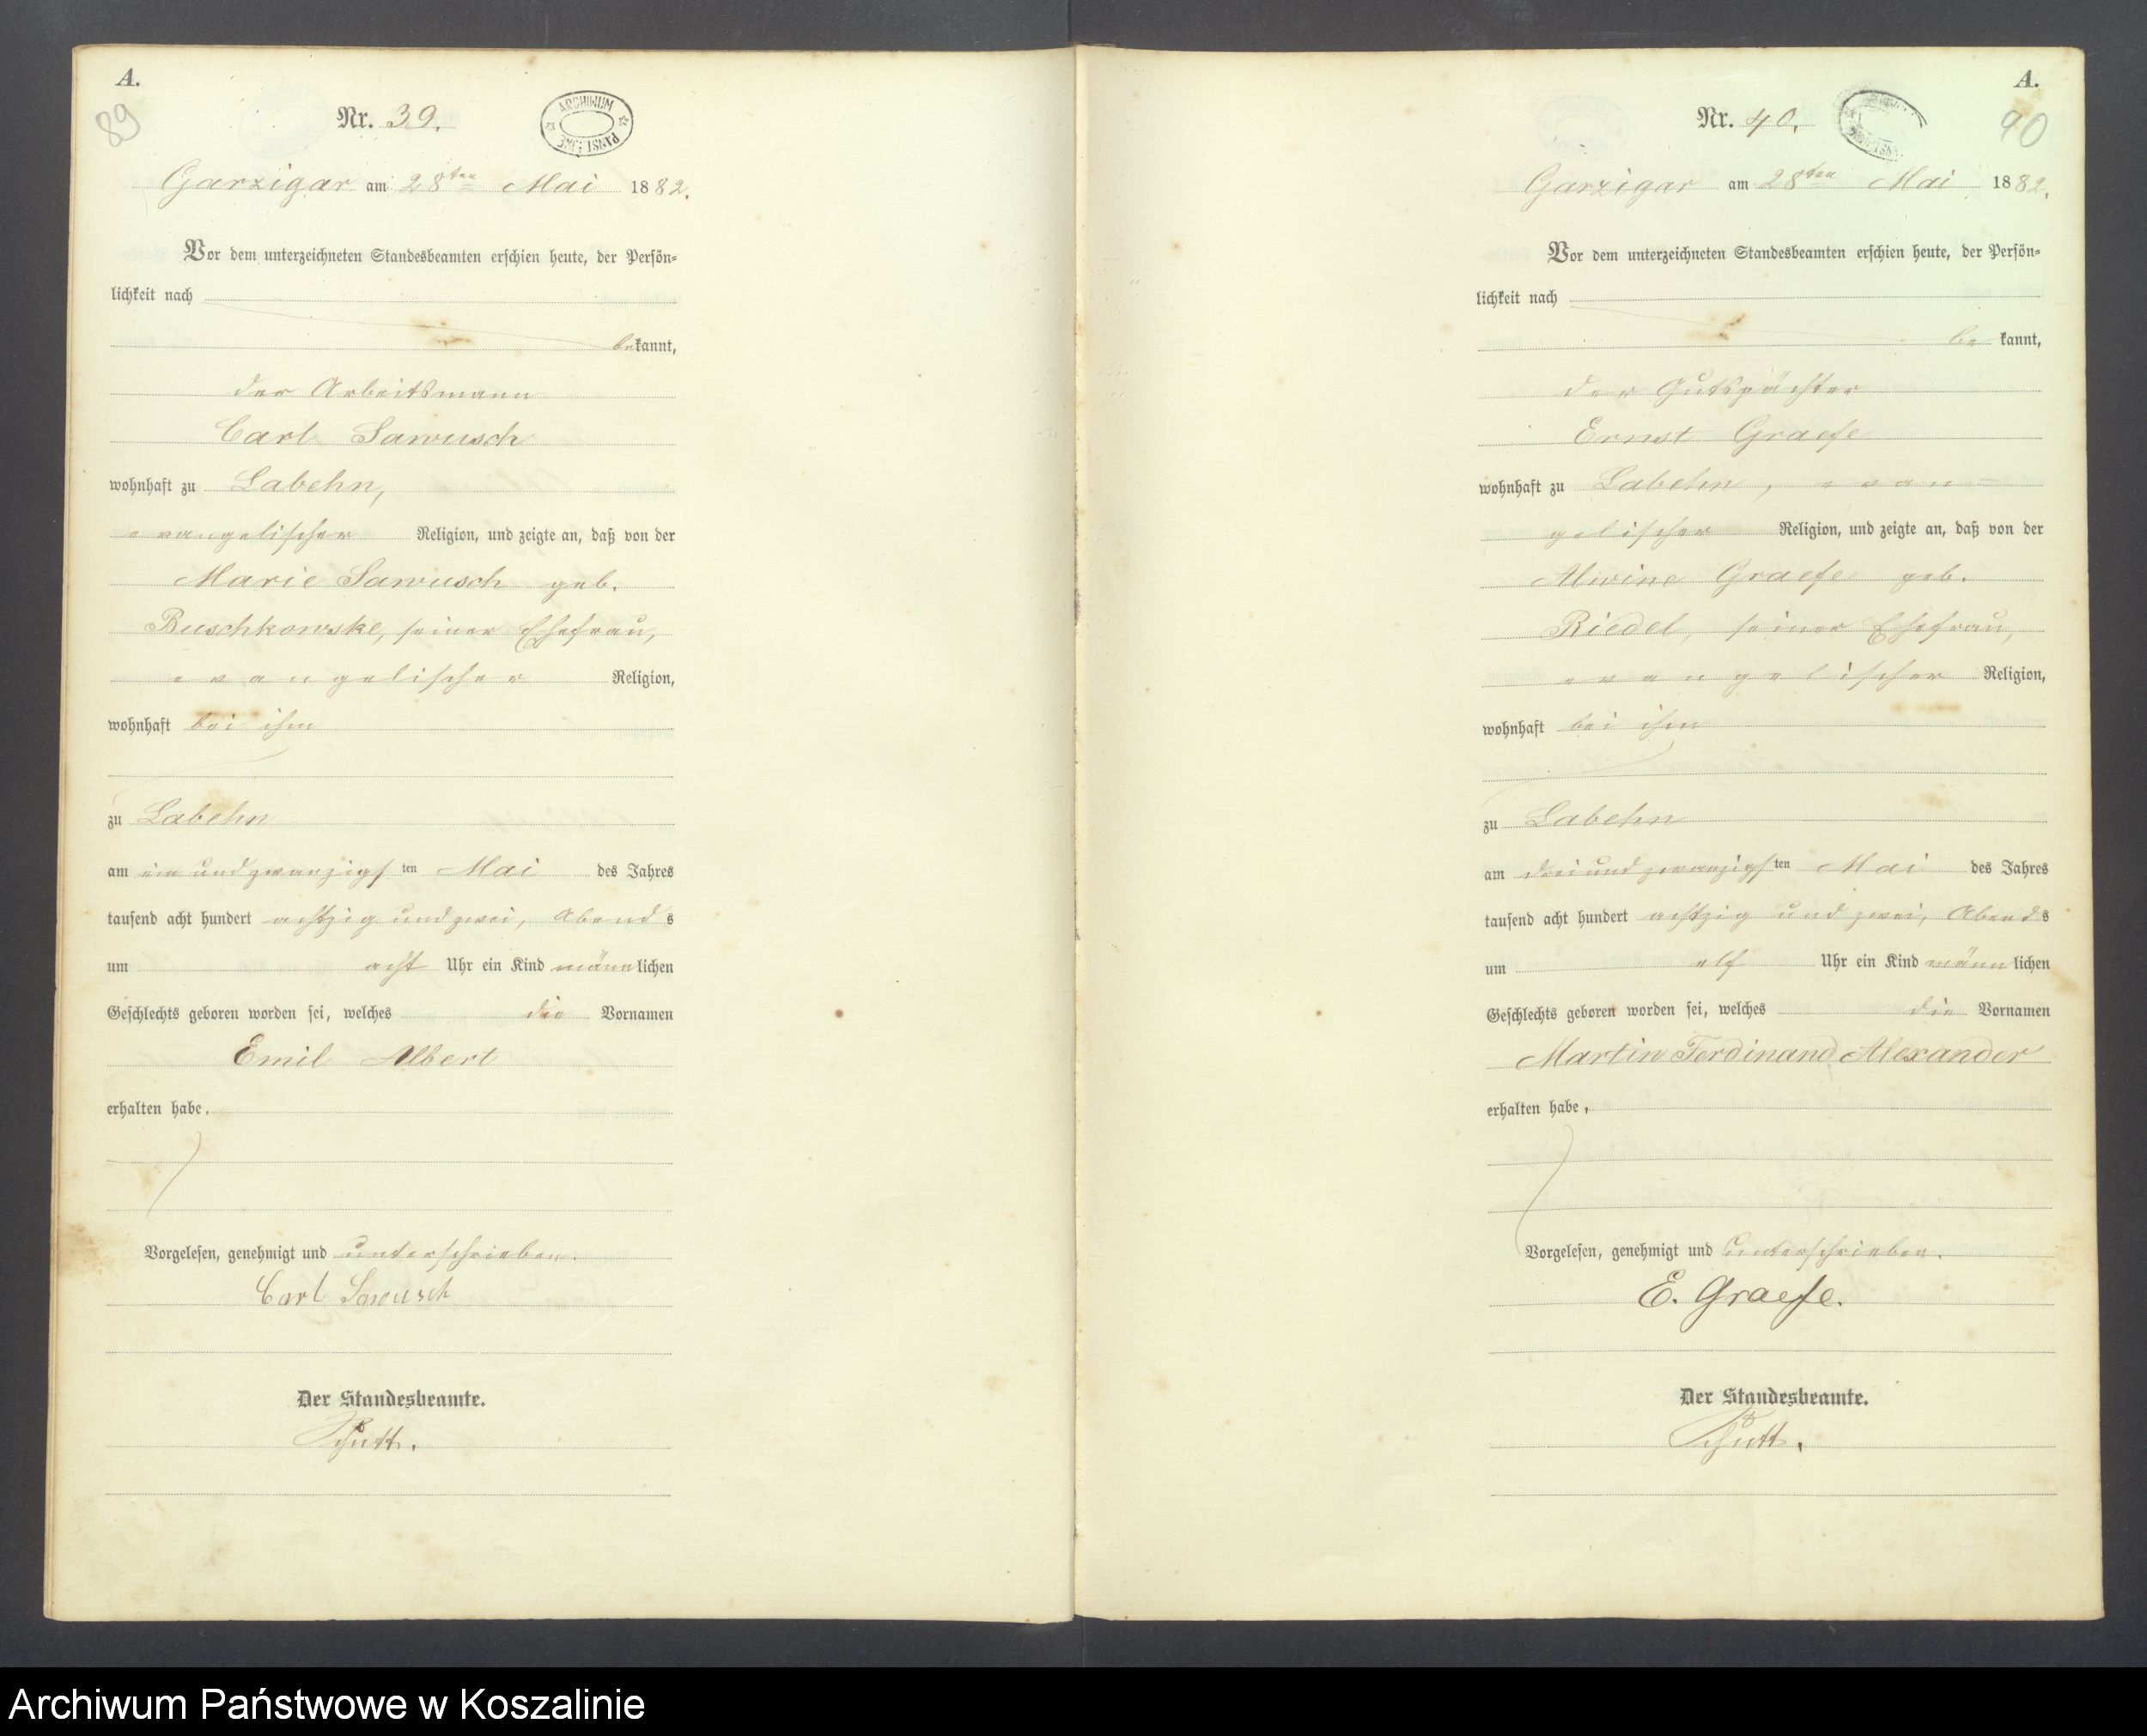 A.
89
Nr. 39.
ARCHIWUM
Garzigar am 28ten Mai 1882.
Vor dem unterzeichneten Standesbeamten erschien heute, der Persön-
lichkeit nach
bekannt,
der Arbeitsmann
Carl Sawusch
wohnhaft zu Labehn,
evangelischer Religion, und zeigte an, daß von der
Marie Sawusch geb.
Buschkowske, seiner Ehefrau,
evangelischer Religion,
wohnhaft bei ihm
zu Labehn
am ein und zwanzigsten Mai des Jahres
tausend acht hundert achtzig und zwei, Abends
um acht Uhr ein Kind männlichen
Geschlechts geboren worden sei, welches die Vornamen
Emil Albert
erhalten habe.
Vorgelesen, genehmigt und unterschrieben.
Carl Sawusch
Der Standesbeamte.
Schütt.
A.
90
Nr. 40.
Garzigar am 28ten Mai 1882.
Vor dem unterzeichneten Standesbeamten erschien heute, der Persön-
lichkeit nach
bekannt,
der Gutspächter
Ernst Graefe
wohnhaft zu Labehn, evan=
gelischer Religion, und zeigte an, daß von der
Alwine Graefe geb.
Riedel, seiner Ehefrau,
evangelischer Religion,
wohnhaft bei ihm
zu Labehn
am drei und zwanzigsten Mai des Jahres
tausend acht hundert achtzig und zwei, Abends
um elf Uhr ein Kind männlichen
Geschlechts geboren worden sei, welches die Vornamen
Martin Ferdinand Alexander
erhalten habe.
Vorgelesen, genehmigt und unterschrieben.
E. Graefe.
Der Standesbeamte.
Schütt.
Archiwum Państwowe w Koszalinie